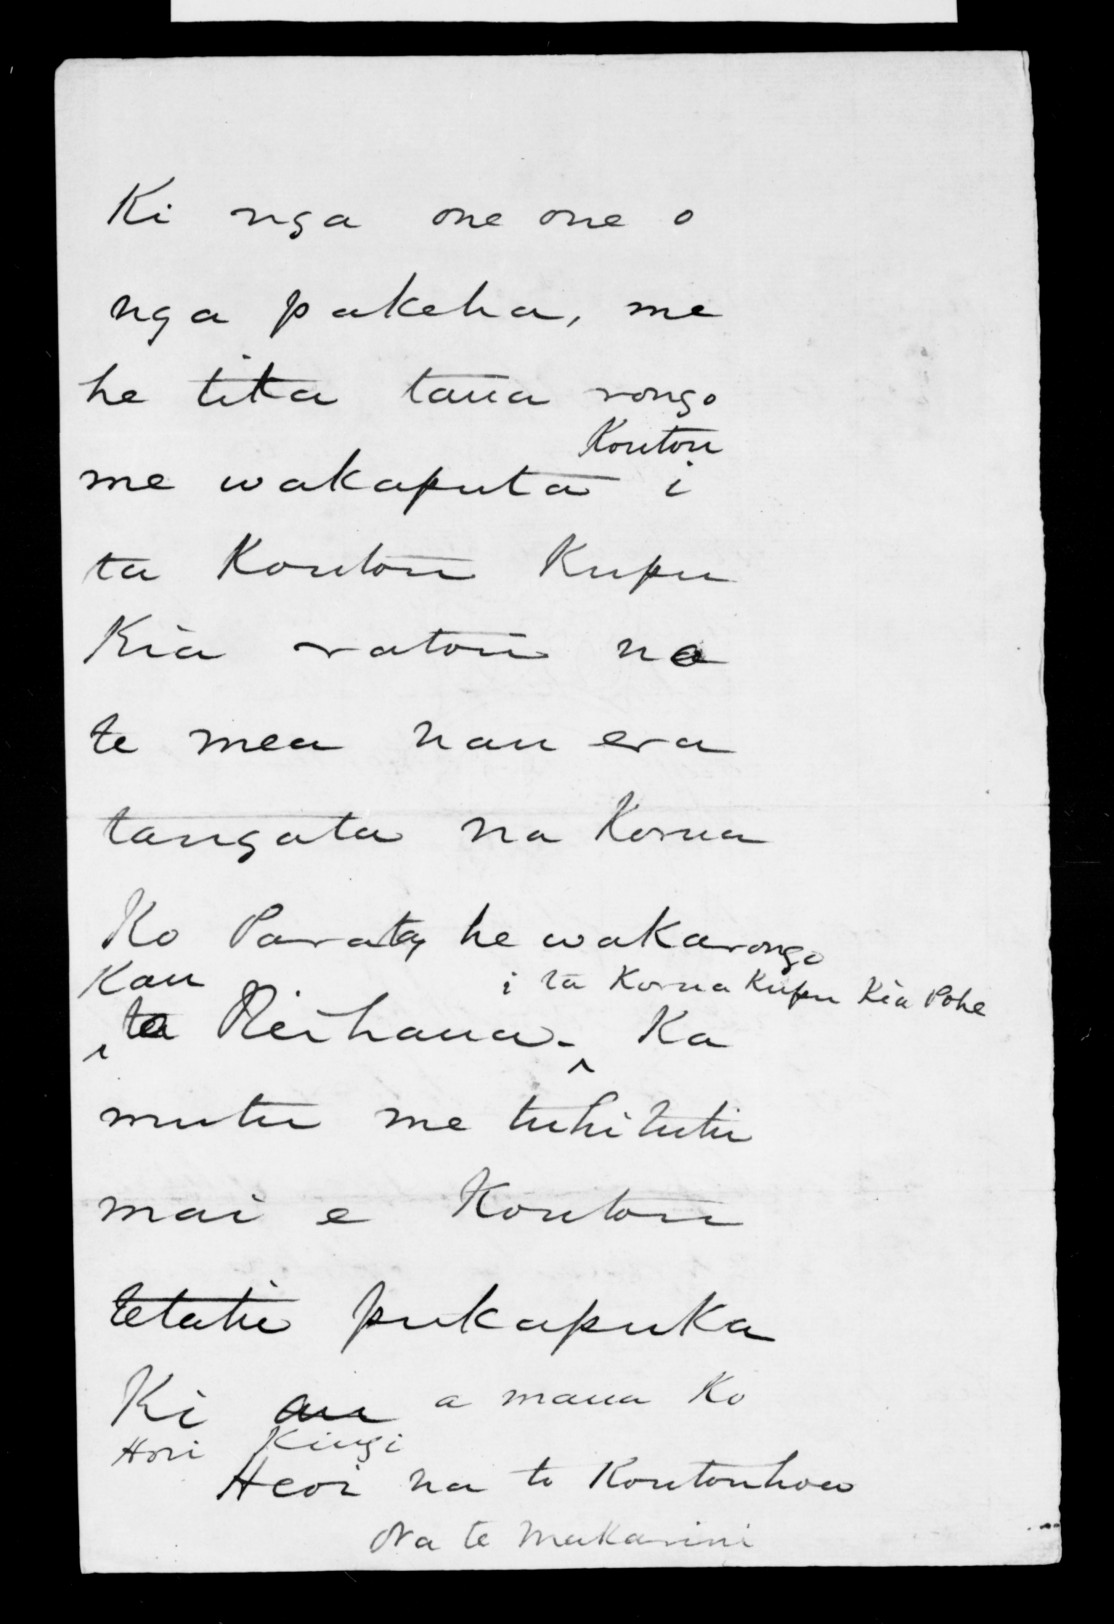 Ki nga one one o
nga pakeha, me
he tika taua rongo
Koutou
me wakaputa i
ta Koutou Kupu
Kia ratou no
te mea nau era
tangata na Korua
Ko Parata, he wakarongo
Kau i ta Korua Kupu Kia Pohe
ta Reihana. Ka
mutu me tuhituhi
mai e Koutou
tetahi pukapuka
Ki au a maua Ko
Hori Kingi
Heoi na to Koutou hoa
Na te Makarini